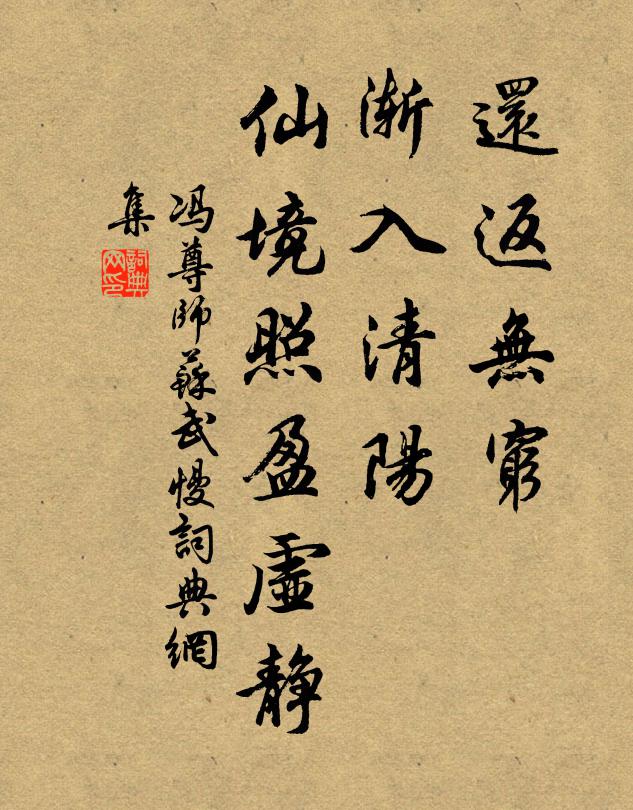 還返無窮
渐入清陽
仙境照盈虛静
冯尊師蘇武慢詞典網
集
詞典
网印